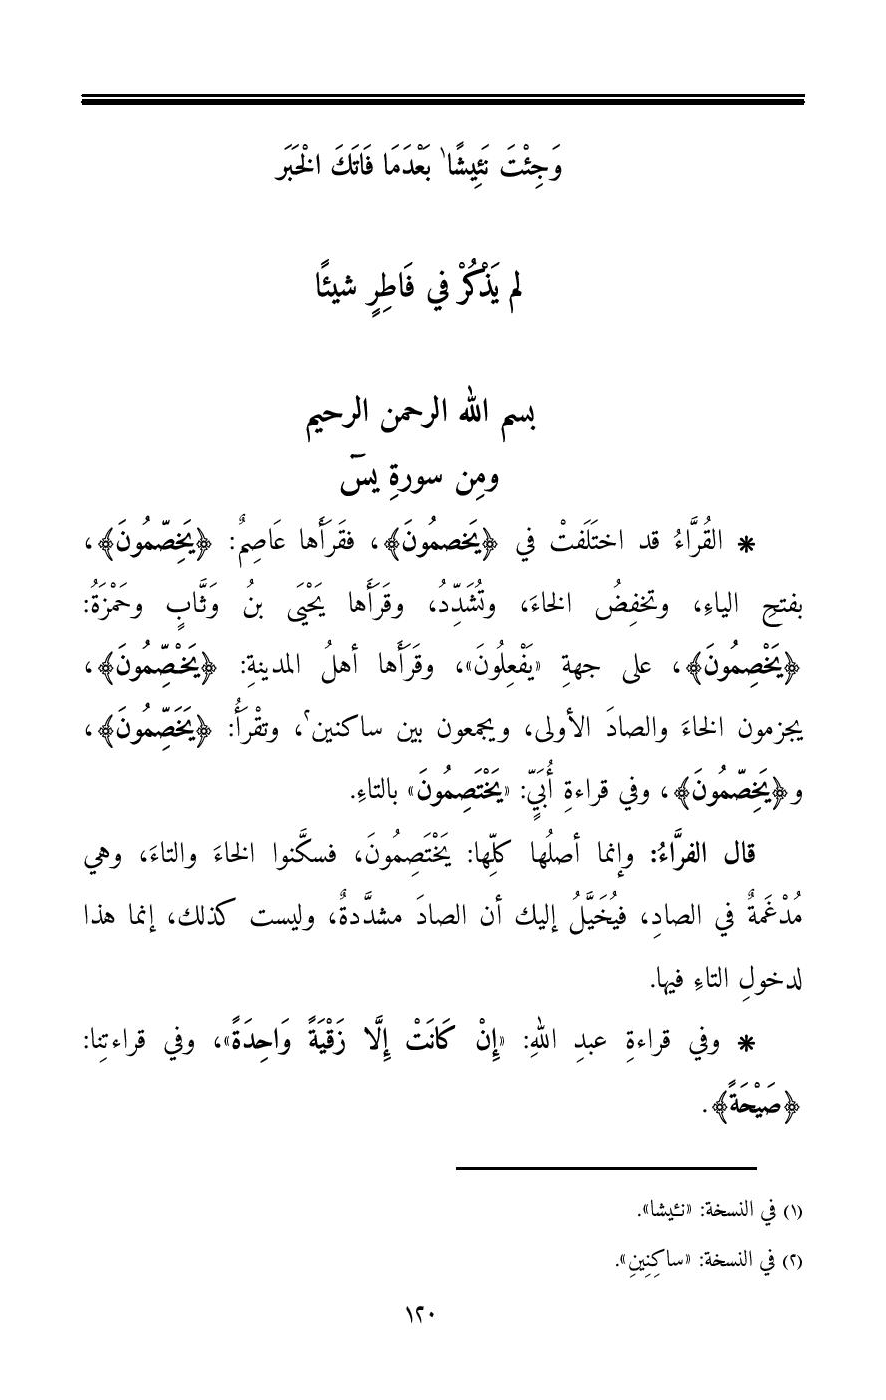 وَجِئْتَ نَئِيشًا١ بَعْدَمَا فَاتَكَ الْخَبَر
لم يَذْكُرْ في فَاطِرٍ شيئًا
بسم الله الرحمن الرحيم
ومِن سورةِ يسٓ
* القُرَّاءُ قد اختَلَفتْ في ﴿يَخصمُونَ﴾، فقَرَأَها عَاصِمٌ: ﴿يَخِصّمُونَ﴾،
بفتحِ الياءِ، وتخفِضُ الخاءَ، وتُشَدِّدُ، وقَرَأَها يَحْيَى بنُ وَثَّابٍ وحَمْزَةُ:
﴿يَخْصِمُونَ﴾، على جهةِ «يَفْعِلُونَ»، وقَرَأَها أهلُ المدينةِ: ﴿يَخْصِّمُونَ﴾،
يجزمون الخاءَ والصادَ الأولى، ويجمعون بين ساكنين٢، وتقْرَأُ: ﴿يَخَصِّمُونَ﴾،
و﴿يَخِصّمُونَ﴾، وفي قراءةِ أُبَيٍّ: «يَخْتَصِمُونَ» بالتاءِ.
قال الفرَّاءُ: وإنما أصلُها كلِّها: يَخْتَصِمُونَ، فسكَّنوا الخاءَ والتاءَ، وهي
مُدْغَمةٌ في الصادِ، فيُخَيَّلُ إليك أن الصادَ مشدَّدةٌ، وليست كذلك، إنما هذا
لدخولِ التاءِ فيها.
* وفي قراءةِ عبدِ اللهِ: «إِنْ كَانَتْ إِلَّا زَقْيَةً وَاحِدَةً»، وفي قراءتِنا:
﴿صَيْحَةً﴾.
(١) في النسخة: «نـئيشا».
(٢) في النسخة: «ساكِنِينِ».
١٢٠